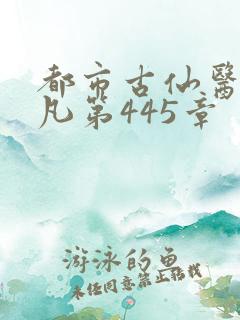 都市古仙醫
凡第445章
游泳的鱼
未经同意禁止转载